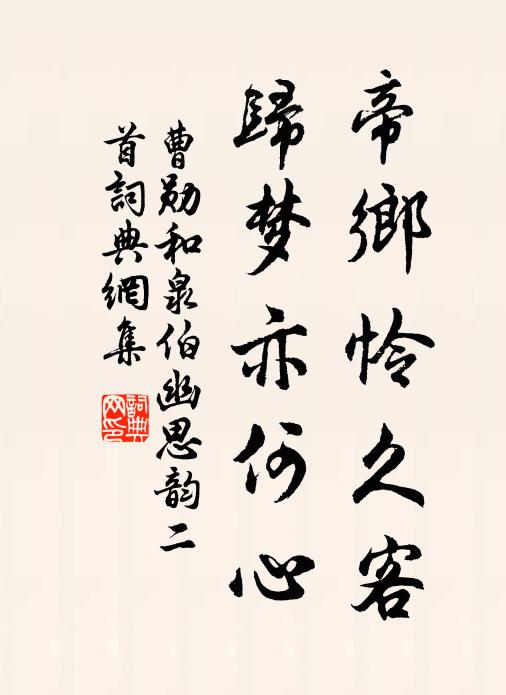 帝鄉怜久客
歸梦亦何心
曹勋和泉伯幽思韵二
首詞典網集
詞典網印